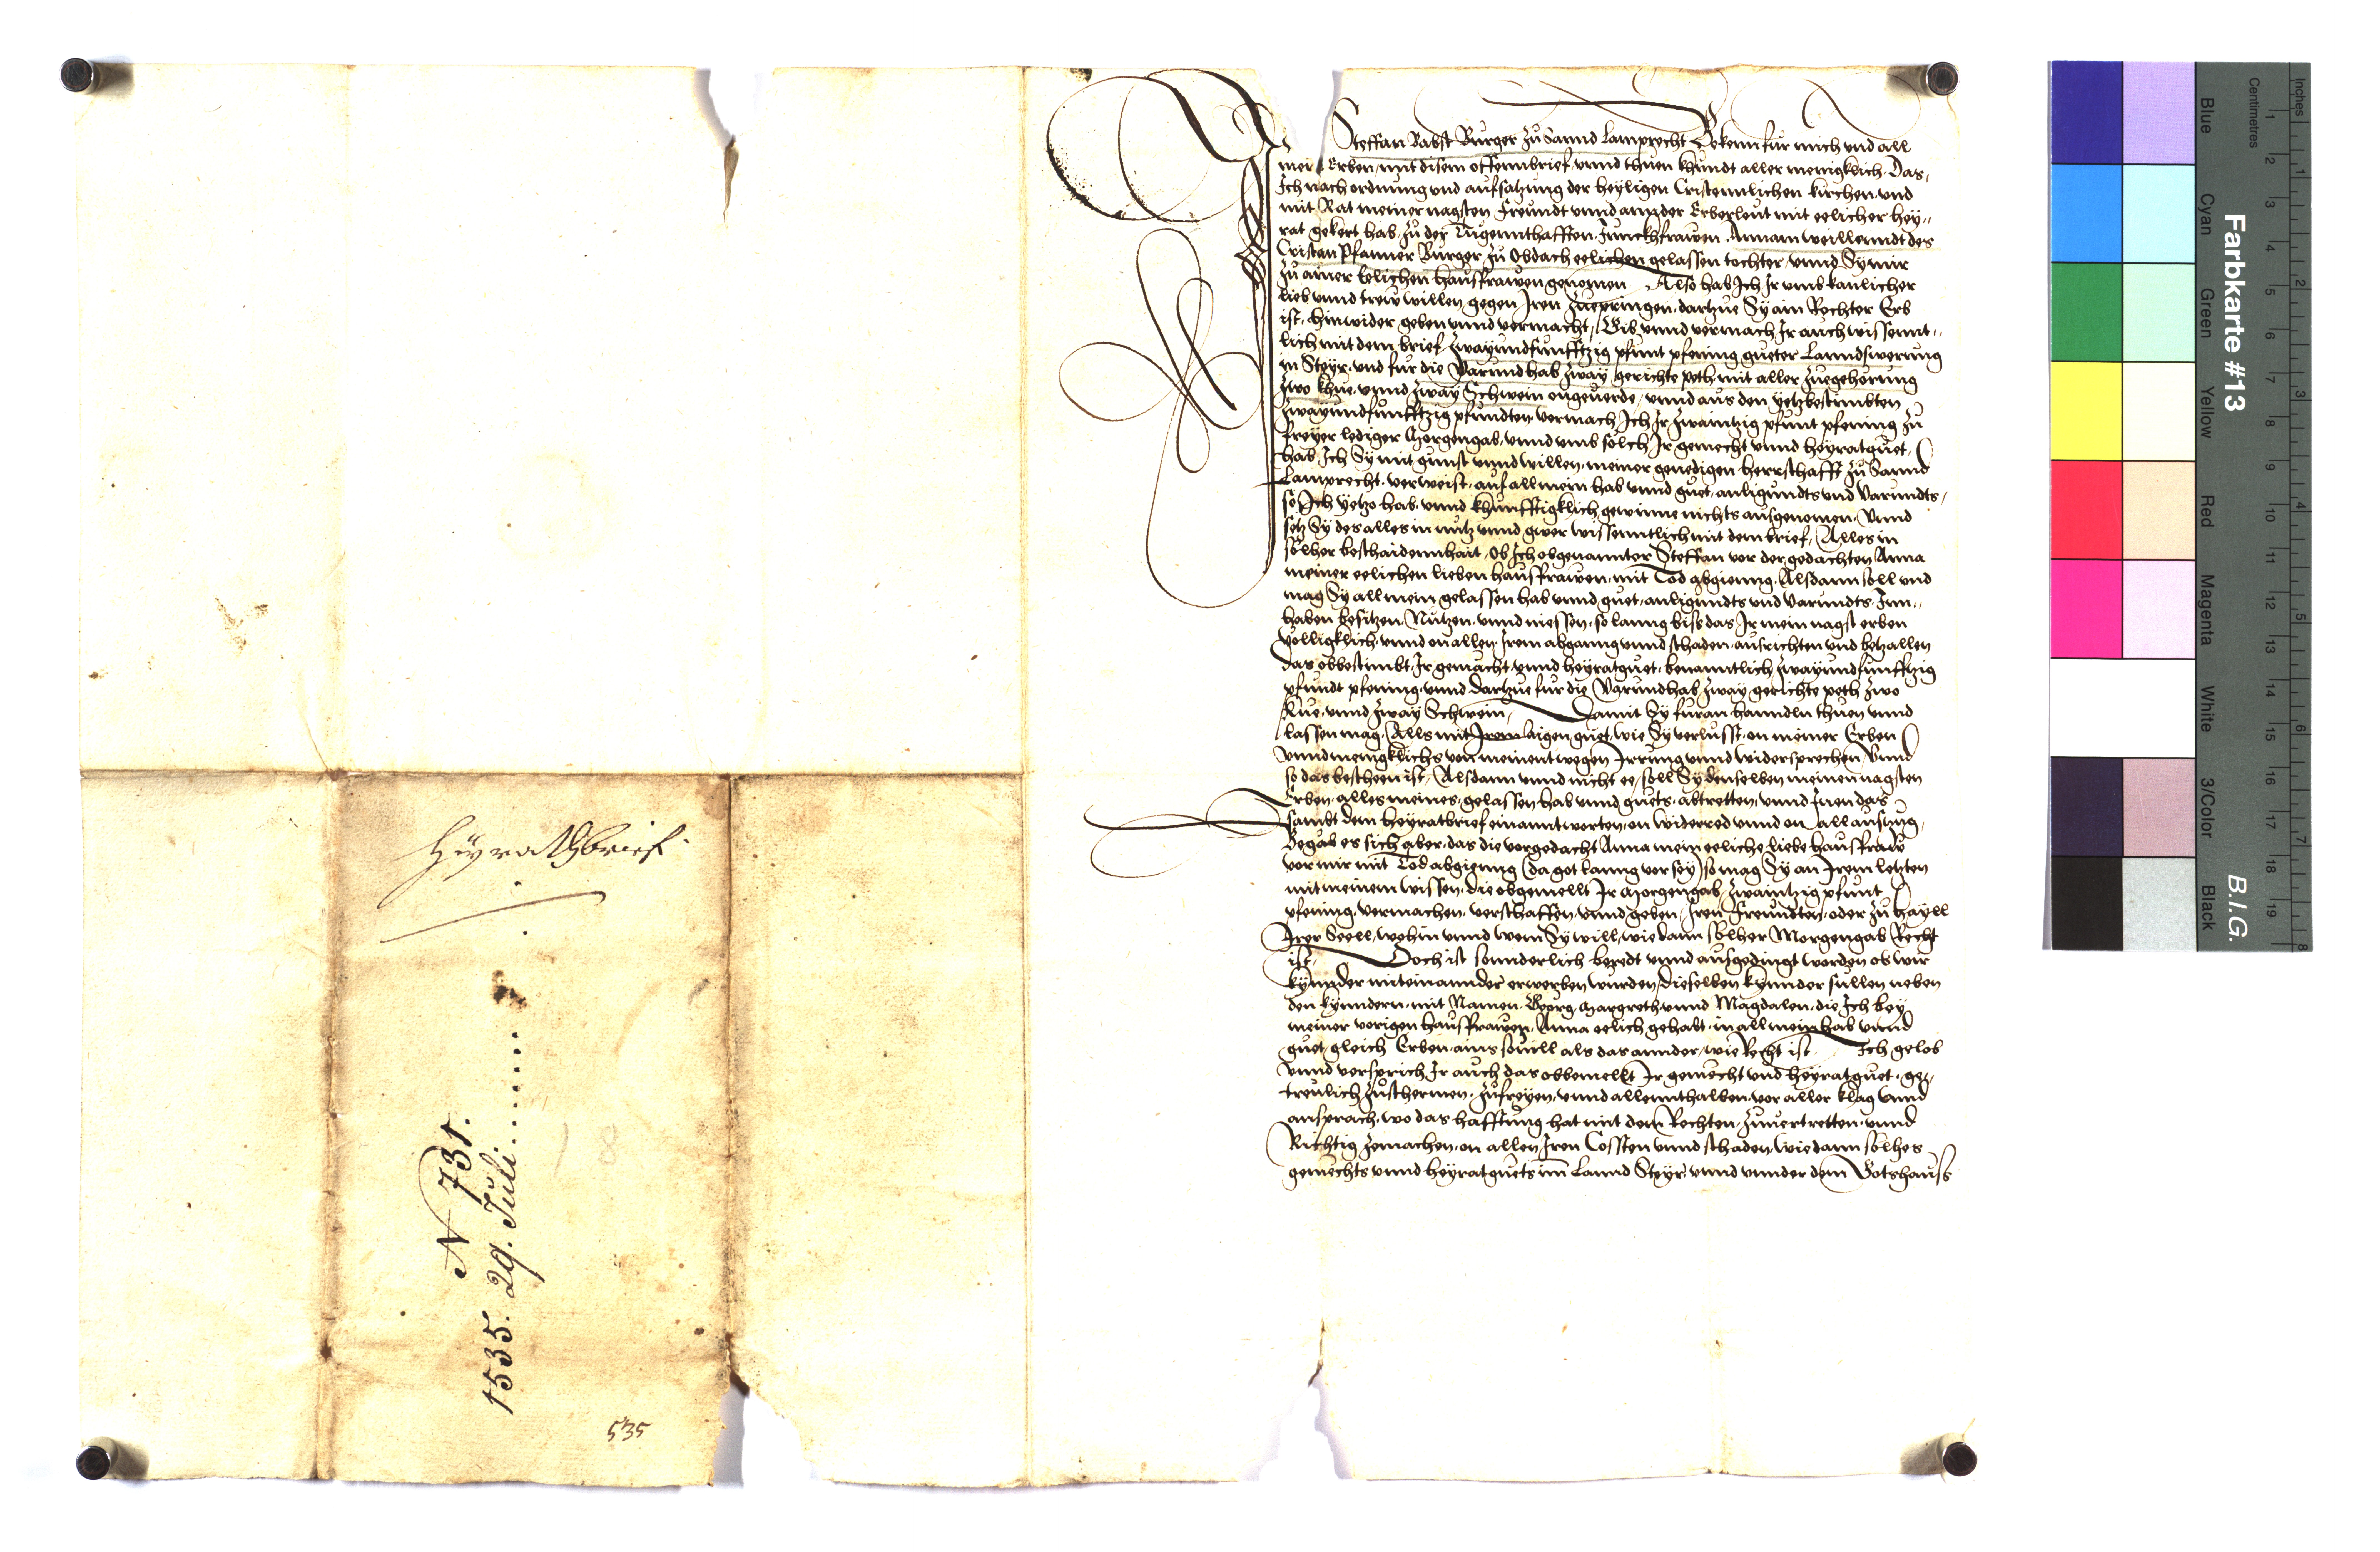 Heyrathbrief
N 731.
1535. 29. Juli
535
Ich Steffan Babst Burger zu Sannd Lamprecht Bekenn fur mich vnd all
mein Erben, mit disem offennbrief, vnnd thuen khundt aller menigklich. Das,
Ich nach ordnung vnd aufsatzung der heyligen Cristennlichen kirchen, vnd
mit Rat meiner nagsten Freundt vnnd annder Erberleut mit eelicher hey,,
rat gekert hab, zu der Tugennthafften Junckhfrawen. Annam weillenndt des
Cristan Pfanner Burger zu Obdach eelichen gelassen tochter, vnnd Sy mir
zu ainer Eelichen hausfrawen genomen Also hab Ich Ir vmb kanlicher
lieb vnnd trew willen gegen Iren zuepringen, dartzue Sy ain Rechter Erb
ist, hinwider geben vnnd vermacht, Gib vnnd vermach Ir auch wissennt,,
lich mit dem brief, Zwayundfunfftzig pfunt pfening gueter Lanndswerung
in Steyr, vnd fur die Varundhab zway gerichte peth mit aller zuegehorung
zwo khue, vnnd zway Schwein ongeuerde, vnnd aus den yetzbestimbten
zwayundfunfftzig pfundten, vermach Ich Ir zwaintzig pfunt pfening zu
freyer lediger Morgengab, vnnd vmb solch Ir gemecht vnnd heyratguet,
hab Ich Sy mit gunst vnnd willen, meiner genedigen herrschafft zu Sannd
Lamprecht. verweist, auf all mein hab vnnd guet, anligundts vnd Varundts,
so Ich yetzo hab, vnnd khunfftigklich gewinne nichts ausgenomen. Vnnd
setz Sy des alles in nutz vnnd gwer wissenntlich mit dem brief, Alles in
solher beschaidennhait, Ob Ich obgenannter Steffan vor der gedachten Anna
meiner eelichen lieben hausfrawen, mit Tod abgienng. Alsdann soll vnd
mag Sy all mein gelassen hab vnnd guet, anligundts vnd Varundts. Inn,,
haben besitzen. Nutzen, vnnd niessen, so lanng biss das Ir mein nagst erben
volligklich, vnnd on allen Irem abganng vnnd schaden, ausrichten vnd betzallen
das obbestimbt, Ir gemacht vnnd heyratguet, benanntlich zwayundfunfftzig
pfundt pfening, vnnd dartzue fur die Varundhab zway gerichte peth zwo
Kue, vnnd zway Schwein, Damit Sy furan hanndln thuen vnnd
lassen mag, Alls mit Irem aigen guet, wie Sy verlusst, on meiner Erben
vnnd menigklichs von meinent wegen Irrung vnnd widersprechen, Vnnd
so das bescheen ist, Alsdann vnnd nicht ee, soll Sy denselben meinen nagsten
Erben, alles meines, gelassen hab vnnd guets, abtretten, vnnd Inen das
sambt dem heyratbrief einanntworten, on widerred vnnd on all auszug,
Begab es sich aber, das die vorgedacht Anna mein eeliche liebe hausfraw
vor mir mit Tod abgienng (da got lanng vor sey) so mag Sy an Irem letzten
mit meinem wissen, die obgemellt Ir Morgengab, zwaintzig pfunt
pfening, vermachen, verschaffen, vnnd geben, Iren Freundten, oder zu hayll
Irer Seell, wohin vnnd wem Sy will, wie dann solher Morgengab Recht
ist, Doch ist sonnderlich beredt vnnd ausgedingt worden ob wir
kynnder miteinannder erwerben wurden, dieselben kynnder sullen neben
den kynndern, mit Namen. Georg, Margreth, vnnd Magdalen, die Ich bey
meiner vorigen hausfrawen, Anna eelich gehabt, in all mein hab vnnd
guet, gleich Erben, ains souill als das annder, wie Recht ist Ich gelob
vnnd versprich Ir auch das obbemellt Ir gemecht vnd heyratguet, ge,
treulich zuschermen, zufreyen, vnnd allennthalben, vor aller klag vnnd
ansprach, wo das hafftung hat mit dem Rechten, zuuertretten, vnnd
Richtig zemachen, on allen Iren Cossten vnnd schaden, wie dann solhes
gemechts vnnd heyratguets im Lannd Steyr, vnnd vnnder dem Gotshauss
Farbkarte #13
B.I.G.
Inches
Centimetres
Blue
Cyan
Green
Yellow
Red
Magenta
White
3/Color
Black